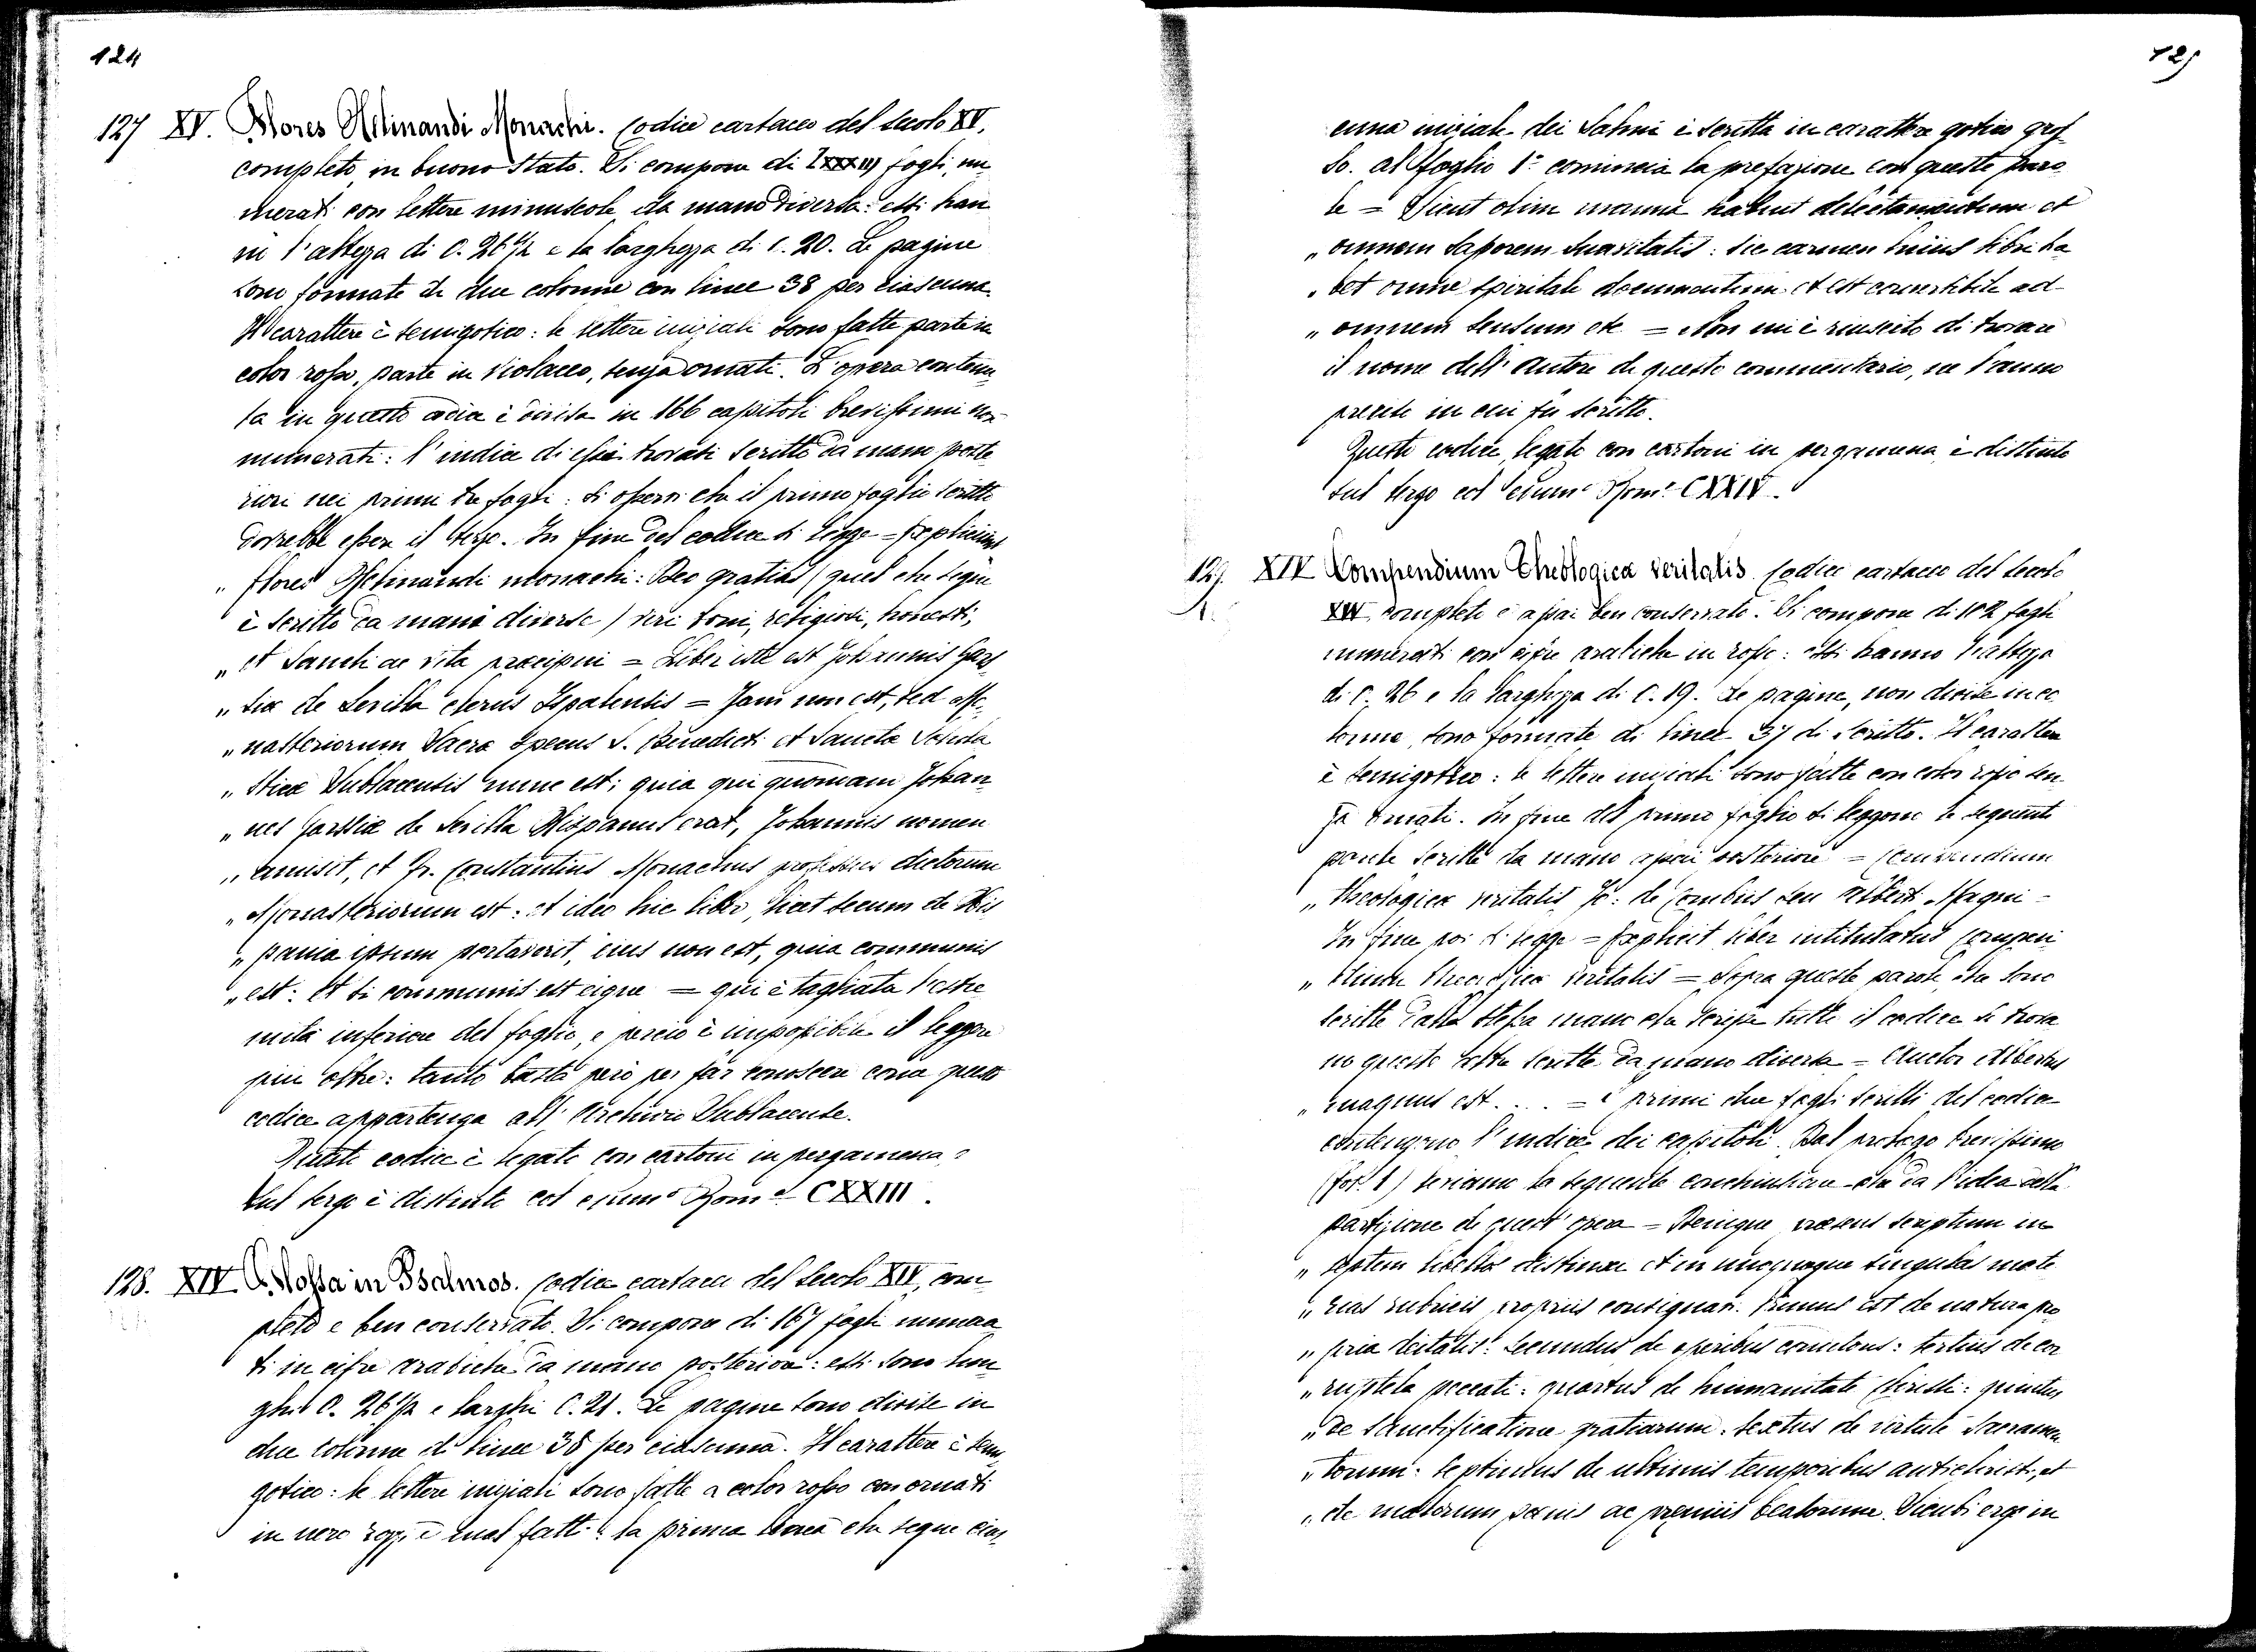 124
127 XV. Flores Helinandi Monachi. Codice cartaceo del secolo XV,
completo, in buono stato. Si compone di LXXXIII fogli, nu
merati con lettere minuscole da mano diversa: essi han
no l'altezza di C. 26 1/2 e la larghezza di C. 20. Le pagine
sono formate di due colonne con linee 38 per ciascuna.
Il carattere è semigotico: le lettere iniziali sono fatte parte in
color rosso, parte in violaceo, senza ornati. L'opera contenu
ta in questo codice è divisa in 166 capitoli brevissimi non
numerati: l'indice di essi trovasi scritto da mano poste
riore nei primi tre fogli: si osservi che il primo foglio scritto
dovrebbe essere il terzo. In fine del codice si legge = Expliciunt
„ flores Helinandi monachi: Deo gratias (quel che segue
è scritto da mano diversa) viri boni, religiosi, honesti,
„ et sancti ac vita præcipui = Liber iste est Johannis Gars
„ siæ de Sevilla clerus Ispalensis = Jam non est, sed Mo
„ nasteriorum Sacræ Specus S. Benedicti et Sanctæ Schola
„ sticæ Sublacensis nunc est; quia qui quoniam Johan
„ nes Garsiæ de Sevilla Hispanus erat, Johannis nomen
„ amisit, et Fr. Constantius Monachus professus dictorum
„ Monasteriorum est: et ideo hic liber, licet secum de His
„ pania ipsum portaverit, eius non est, quia communis
„ est: et si communis est eique = qui è tagliata l'estre
mità inferiore del foglio, e perciò è impossibile il leggere
più oltre: tanto basta però per far conoscere come questo
codice appartenga all'Archivio Sublacense.
Questo codice è legato con cartoni in pergamena e
sul tergo è distinto col num.o Rom.o CXXIII.
128. XIV. Glossa in Psalmos. Codice cartaceo del secolo XIV, com
pleto e ben conservato. Si compone di 167 fogli numera
ti in cifre arabiche da mano posteriore: essi sono lun
ghi C. 26 1/2 e larghi C. 21. Le pagine sono divise in
due colonne di linee 38 per ciascuna. Il carattere è semi
gotico: le lettere iniziali sono fatte a color rosso con ornati
in nero rozzi e mal fatti: la prima linea che segue cias
125
cuna iniziale dei Salmi è scritta in carattere gotico gros
so. Al foglio 1.o comincia la prefazione con queste paro
le = Sicut olim manna habuit delectamentum et
„ omnem saporem suavitatis: sic carmen huius libri ha
„ bet omne spiritale documentum et est convertibile ad
„ omnem sensum etc = Non mi è riuscito di trovare
il nome dell'Autore di questo commentario, ne l'anno
preciso in cui fu scritto.
Questo codice, legato con cartoni in pergamena, è distinto
sul tergo col num.o Rom.o CXXIV.
129. XIV Compendium Theologicæ veritatis. Codice cartaceo del secolo
XIV, completo e assai ben conservato. Si compone di 102 fogli
numerati con cifre arabiche in rosso: essi hanno l'altezza
di C. 26 e la larghezza di C. 19. Le pagine, non divise in co
lonne, sono formate di linee 37 di scritto. Il carattere
è semigotico: le lettere iniziali sono fatte con color rosso sen
za ornati. In fine del primo foglio si leggono le seguenti
parole scritte da mano assai posteriore = Compendium
„ theologicæ veritatis Jo: de Combis seu Alberti Magni =
In fine poi si legge = Explicit liber intitulatus Compen
„ dium theologicæ veritatis = Sopra queste parole, che sono
scritte dalla stessa mano che scrisse tutto il codice si trova
no queste altre scritte da mano diversa = Auctor Albertus
„ magnus est . . . = I primi due fogli scritti del codice
contengono l'indice dei capitoli. Dal prologo brevissimo
(fol. 1) leviamo la seguente conchiusione che dà l'idea della
partizione di quest'opera = Denique præsens scriptum in
„ septem libellos distinxi et in unoquoque singulas mate
„ rias rubricis propriis consignavi. Primus est de natura pro
„ pria deitatis: secundus de operibus conditoris: tertius de cor
„ ruptela peccati: quartus de humanitate Christi: quintus
„ de sanctificatione gratiarum: sextus de virtute Sacramen
„ torum: septimus de ultimis temporibus antichristi, et
„ de malorum pœnis ac præmiis beatorum. Sicubi ergo in